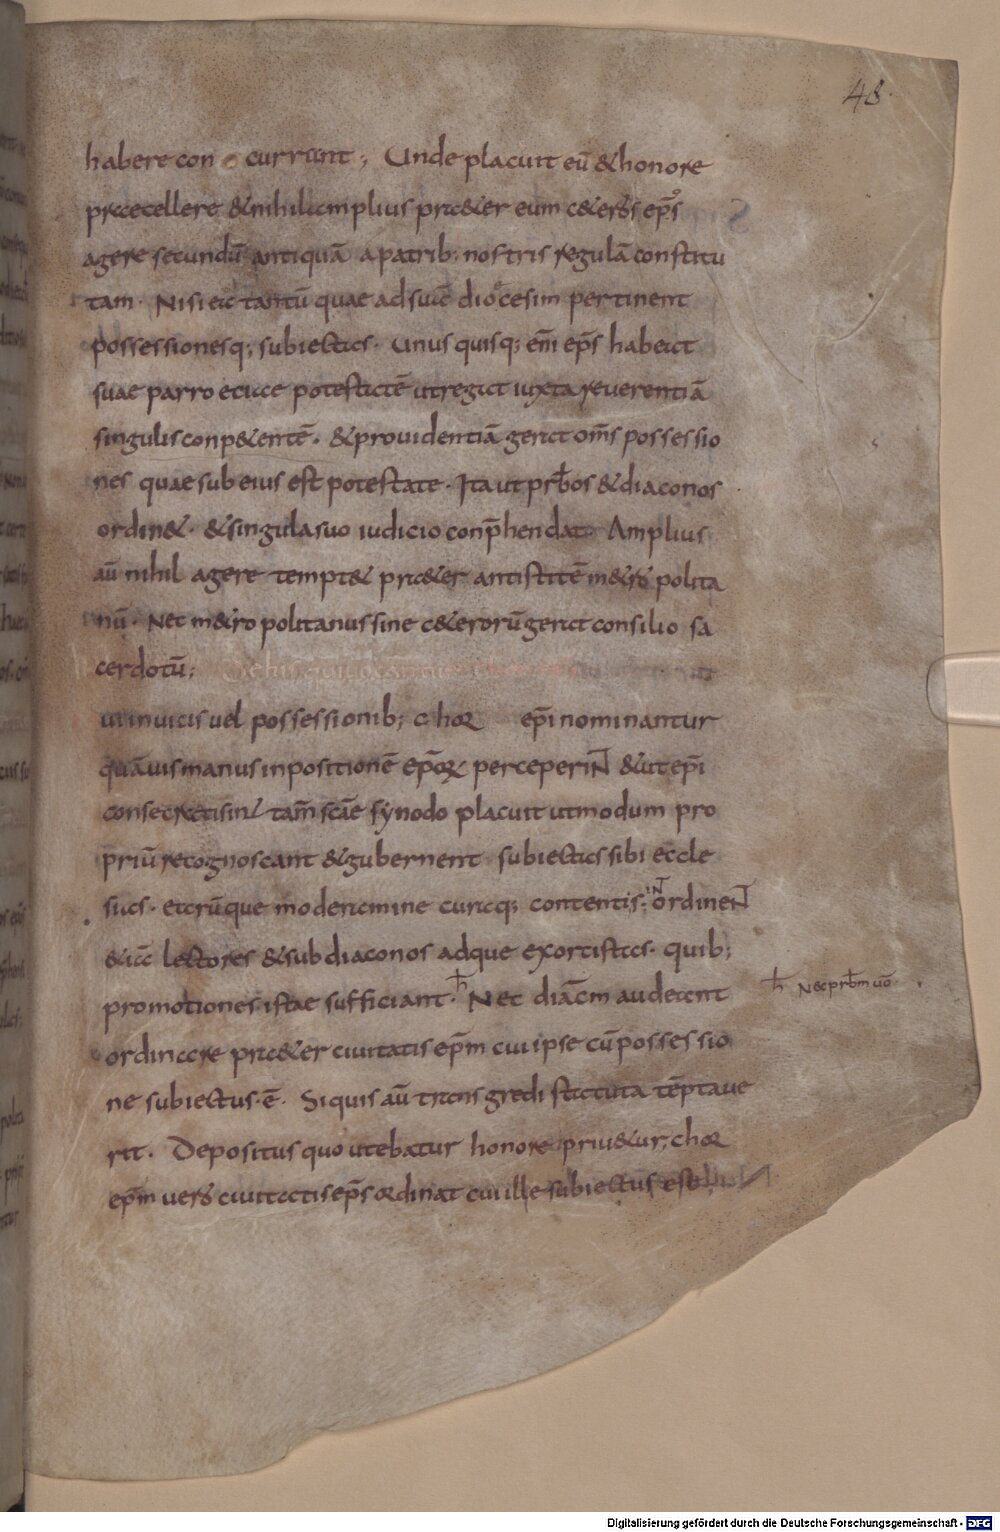 48.
habere con currunt; Unde placuit eū &honore
praecellere &nihil amplius praeter eum c&eros ep̄s
agere secundū antiquā a patrib; nostris regulā constitu
tam. Nisi ea tantū quae ad suā diocesim pertinent
possessionesq; subiectas. Unus quisq; em̄ ep̄s habeat
suae parroeciae potestatē ut regat iuxta reverentiā
singulis conp&entē. &providentiā gerat om̄s possessio
nes quae sub eius est potestate. Ita ut prb̄os &diaconos
ordin&. &singula suo iudicio conp̄hendat. Amplius
aū nihil agere tempt& pra&er antistitē m&ropolita
nū. Nec m&ropolitanus sine c&erorū gerat consilio sa
cerdotū; De his qui vocantur
ui in vicis vel possessionib; chor ep̄i nominantur
quāvis manus inpositionē ep̄or perceperiNT &ut ep̄i
consecrati sint tam̄ sc̄ae synodo placuit ut modum pro
priū recognoscant &gubernent subiectas sibi eccle
sias. earūque moderamine curaq; contentis; ordineNT
&iā lectores &subdiaconos adque exorcistas. quib;
promotiones istae sufficiant. h̄ Nec diac̄m audeant
h̄ Nec prb̄m vō.
ordinare pra&er civitatis ep̄m cui ipse cū possessio
ne subiectus ē. Si quis aū transgredi statuta tēptave
rit. Depositus quo utebatur honore priv&ur; chor
ep̄m vero civitatis ep̄s ordinat cui ille subiectus est
Digitalisierung gefördert durch die Deutsche Forschungsgemeinschaft - DFG